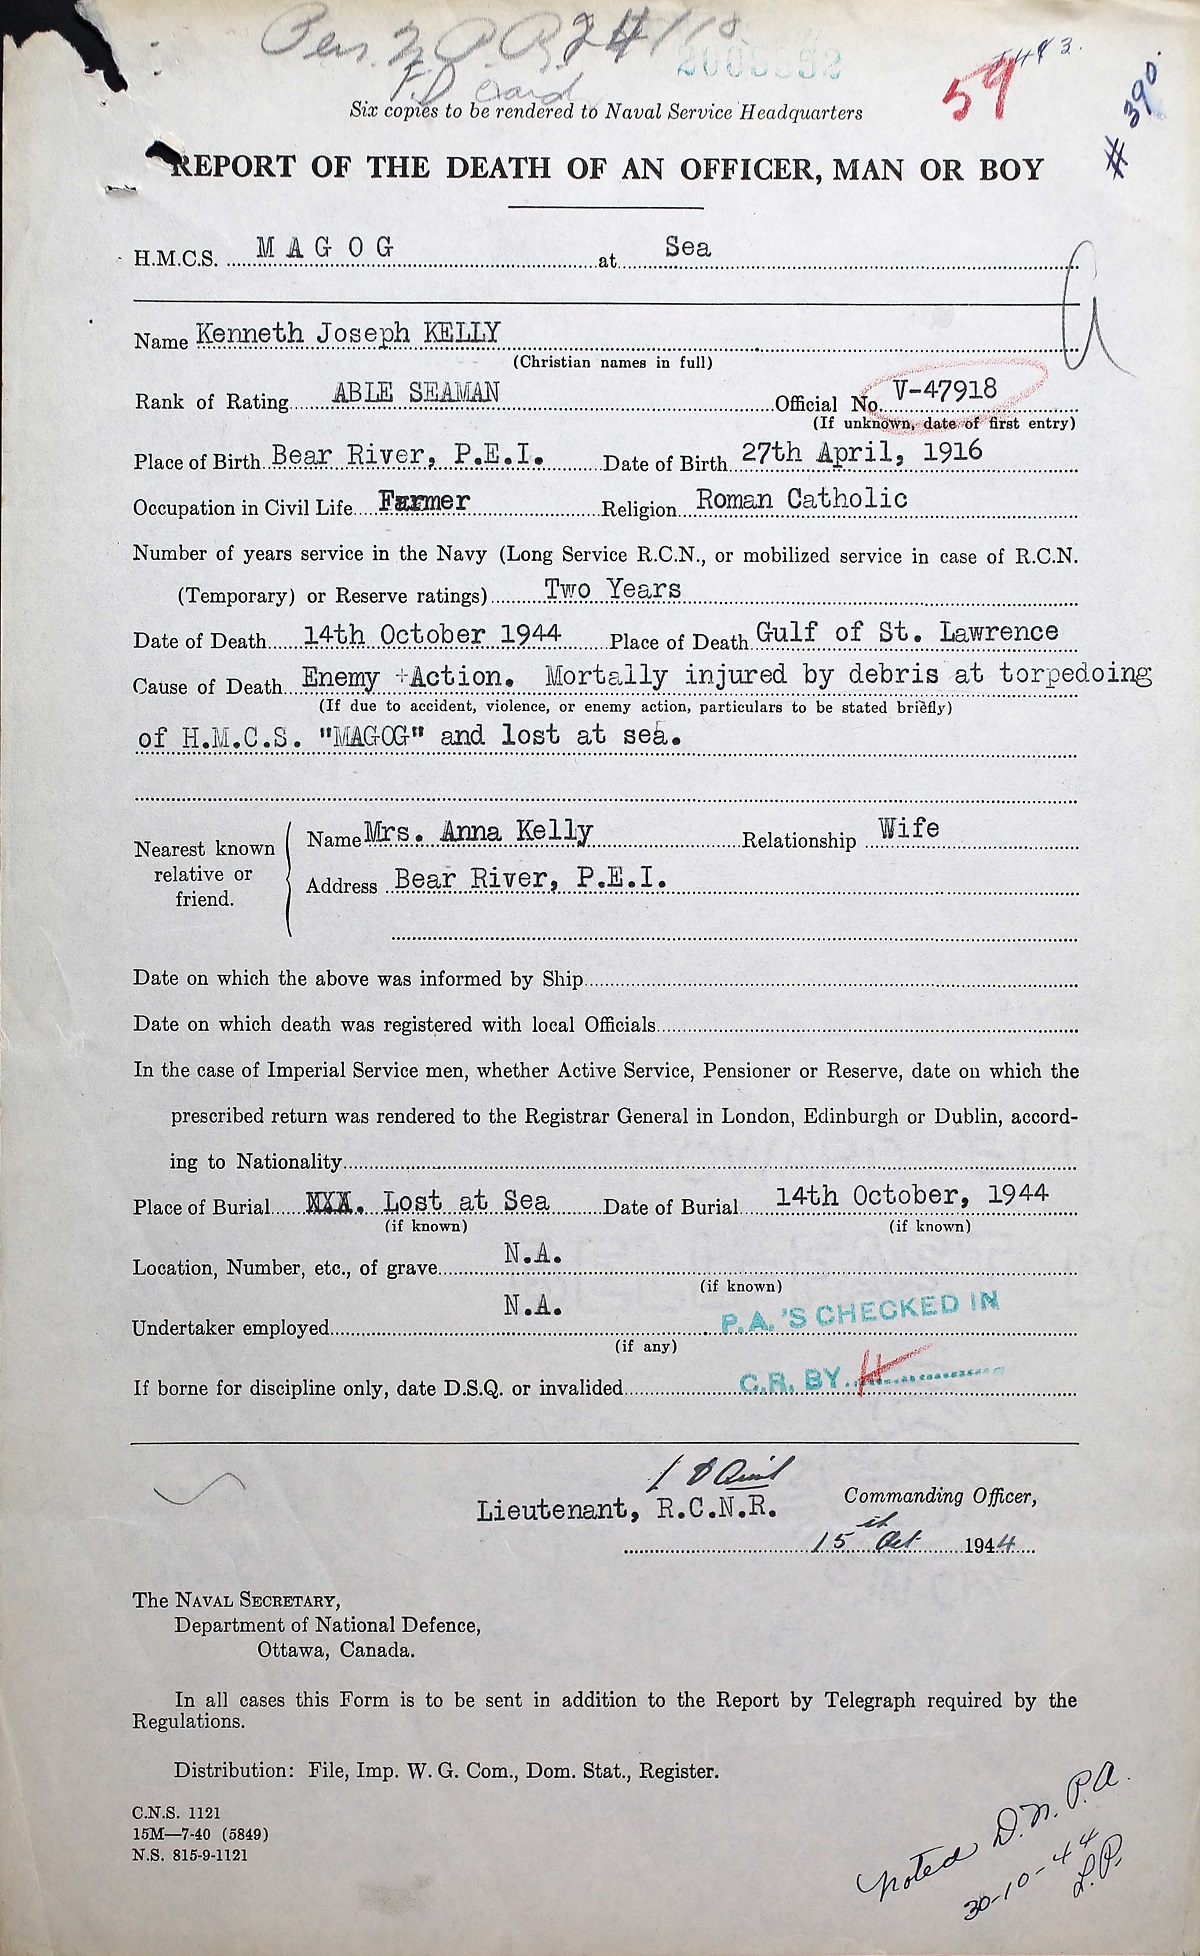 F.D. Card
59
# 390.
Six copies to be rendered to Naval Service Headquarters
REPORT OF THE DEATH OF AN OFFICER, MAN OR BOY
H.M.C.S. MAGOG at Sea
Name Kenneth Joseph KELLY
(Christian names in full)
Rank of Rating ABLE SEAMAN Official No. V-47918
(If unknown, date of first entry)
Place of Birth Bear River, P.E.I. Date of Birth 27th April, 1916
Occupation in Civil Life Farmer Religion Roman Catholic
Number of years service in the Navy (Long Service R.C.N., or mobilized service in case of R.C.N.
(Temporary) or Reserve ratings) Two Years
Date of Death 14th October 1944 Place of Death Gulf of St. Lawrence
Cause of Death Enemy Action. Mortally injured by debris at torpedoing
(If due to accident, violence, or enemy action, particulars to be stated briefly)
of H.M.C.S. "MAGOG" and lost at sea.
Nearest known relative or friend.
Name Mrs. Anna Kelly Relationship Wife
Address Bear River, P.E.I.
Date on which the above was informed by Ship
Date on which death was registered with local Officials
In the case of Imperial Service men, whether Active Service, Pensioner or Reserve, date on which the
prescribed return was rendered to the Registrar General in London, Edinburgh or Dublin, accord-
ing to Nationality
Place of Burial Lost at Sea Date of Burial 14th October, 1944
(if known) (if known)
Location, Number, etc., of grave N.A.
(if known)
Undertaker employed N.A.
(if any)
P.A.'S CHECKED IN
If borne for discipline only, date D.S.Q. or invalided
C.R. BY H
Lieutenant, R.C.N.R. Commanding Officer,
15th Oct 1944
The NAVAL SECRETARY,
Department of National Defence,
Ottawa, Canada.
In all cases this Form is to be sent in addition to the Report by Telegraph required by the
Regulations.
Distribution: File, Imp. W. G. Com., Dom. Stat., Register.
C.N.S. 1121
15M—7-40 (5849)
N.S. 815-9-1121
Noted D.N.P.A.
30-10-44
L.P.